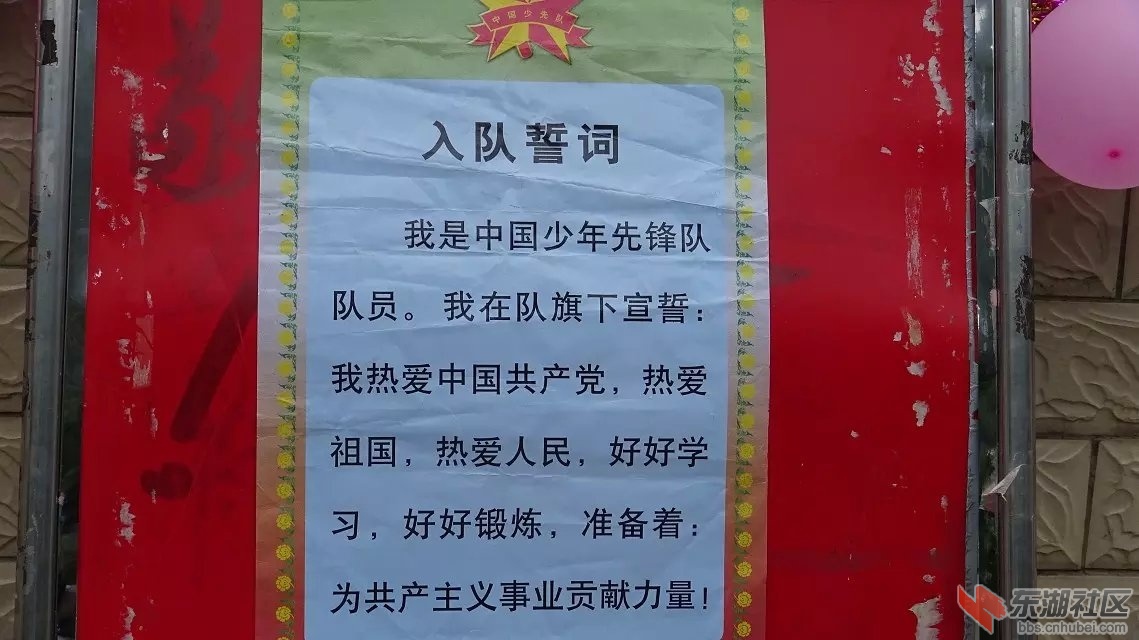 中国少先队
入队誓词
我是中国少年先锋队
队员。我在队旗下宣誓：
我热爱中国共产党，热爱
祖国，热爱人民，好好学
习，好好锻炼，准备着：
为共产主义事业贡献力量！
东湖社区
bbs.cnhubei.com